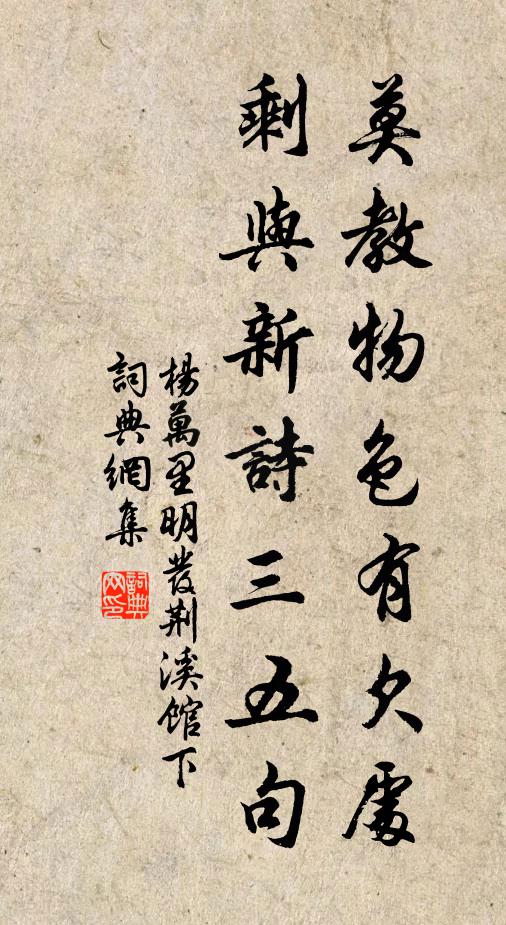 莫教物色有欠處
剩與新詩三五句
楊萬里明發荆溪館下
詞典網集
詞典網印